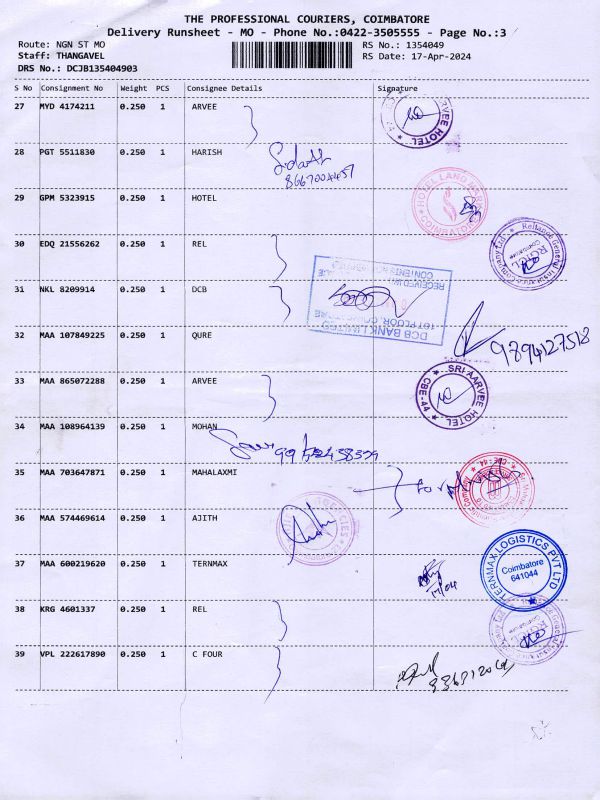 THE PROFESSIONAL COURIERS, COIMBATORE
Delivery Runsheet - MO - Phone No.:0422-3505555 - Page No.:3
Route: NGN ST MO RS No.: 1354049
Staff: THANGAVEL RS Date: 17-Apr-2024
DRS No.: DCJB135404903
S No Consignment No Weight PCS Consignee Details Signature
27 MYD 4174211 0.250 1 ARVEE
AARVEE HOTEL
28 PGT 5511830 0.250 1 HARISH
29 GPM 5323915 0.250 1 HOTEL
HOTEL LAND MARK
COIMBATORE
30 EDQ 21556262 0.250 1 REL
Reliance General Insurance Company Ltd
RGICL
Coimbatore
31 NKL 8209914 0.250 1 DCB
DCB BANK LIMITED
1ST FLOOR,
RECEIVED
CONTENTS NOT
32 MAA 107849225 0.250 1 QURE
9894127518
33 MAA 865072288 0.250 1 ARVEE
SRI AARVEE HOTEL
CBE-44
34 MAA 108964139 0.250 1 MOHAN
35 MAA 703647871 0.250 1 MAHALAXMI
for
36 MAA 574469614 0.250 1 AJITH
AGENCIES
37 MAA 600219620 0.250 1 TERNMAX
17/04
TERNMAX LOGISTICS PVT LTD
Coimbatore
641044
38 KRG 4601337 0.250 1 REL
RGICL
Coimbatore
39 VPL 222617890 0.250 1 C FOUR